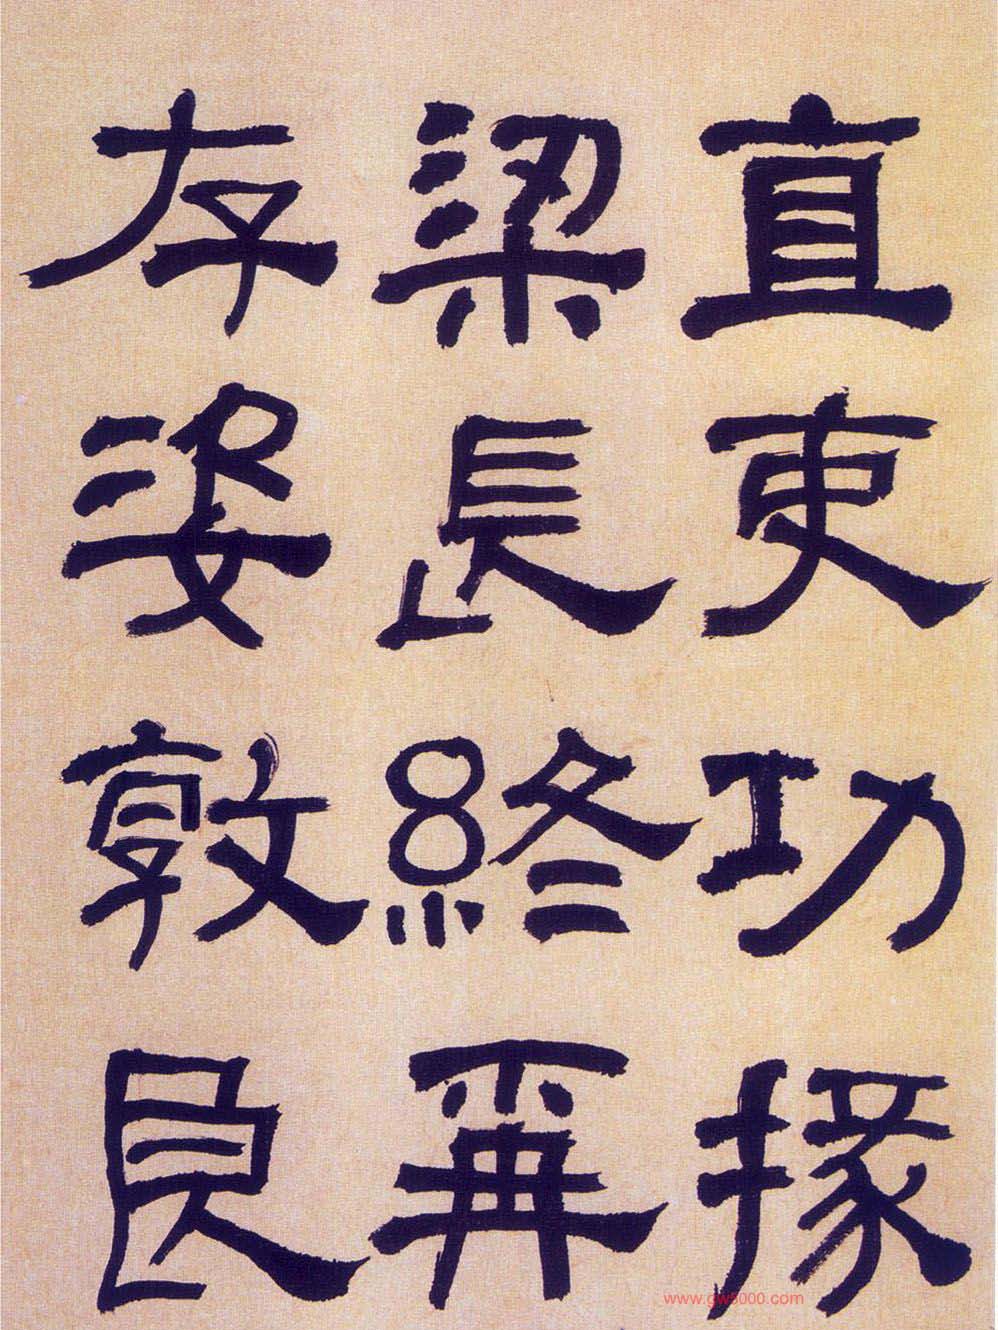 直吏功掾
梁長終再
存姿敦良
www.gw5000.com